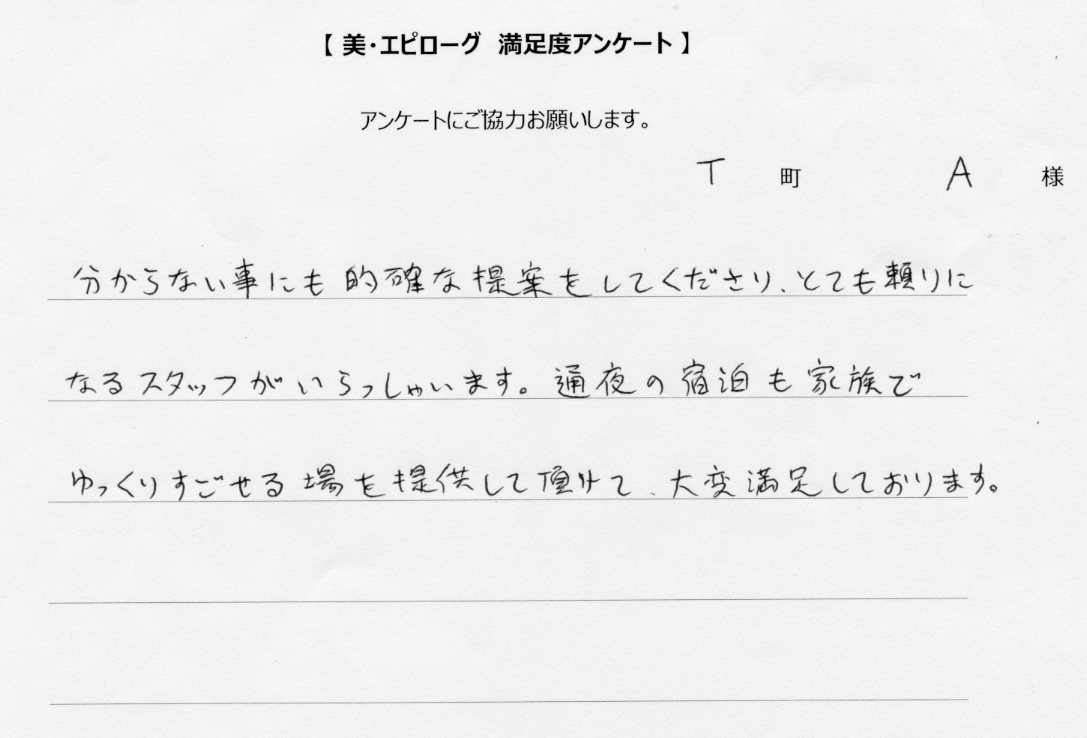 【 美・エピローグ 満足度アンケート 】
アンケートにご協力お願いします。
T 町 A 様
分からない事にも的確な提案をしてくださり、とても頼りに
なるスタッフがいらっしゃいます。通夜の宿泊も家族で
ゆっくりすごせる場を提供して頂けて、大変満足しております。